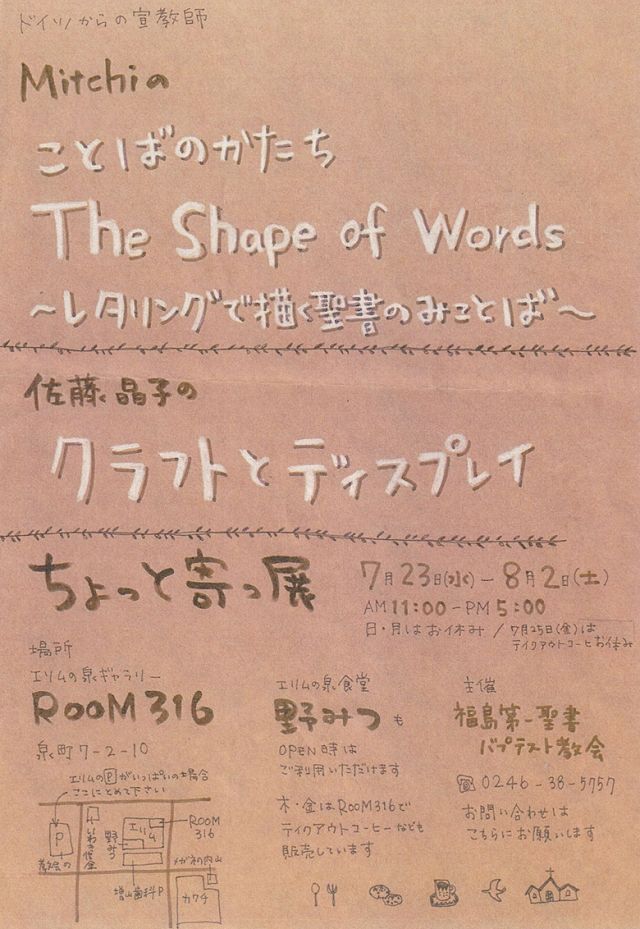 ドイツからの宣教師
Mitchiの
ことばのかたち
The Shape of Words
～レタリングで描く聖書のみことば～
佐藤晶子の
クラフトとディスプレイ
ちょっと寄っ展
7月23日(水)-8月2日(土)
AM11:00-PM5:00
日・月はお休み/7月25日(金)は
テイクアウトコーヒーお休み
場所
エリムの泉ギャラリー
ROOM316
泉町7-2-10
エリムの泉食堂
野みつも
OPEN時は
ご利用いただけます
木・金はROOM316で
テイクアウトコーヒーなども
販売しています
主催
福島第一聖書
バプテスト教会
☎0246-38-5757
お問い合わせは
こちらにお願いします
エリムのPがいっぱいの場合
ここにとめて下さい
P
教会の
いわき信金
野みつ
エリム
ROOM
316
増山歯科P
メガネの内山
カワチ